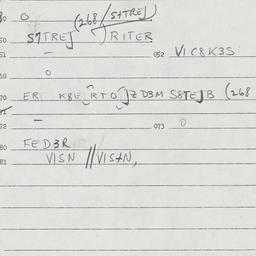 30 O (268/S7TREJ
50 S7TREJ) RITER
51 — 052 VIC8K3S
60 O
70 ER K8E RTO JZ D3M S8TEJB (268
71
72 — 073 O
80 FED3R
81 VISN // VIS7N,